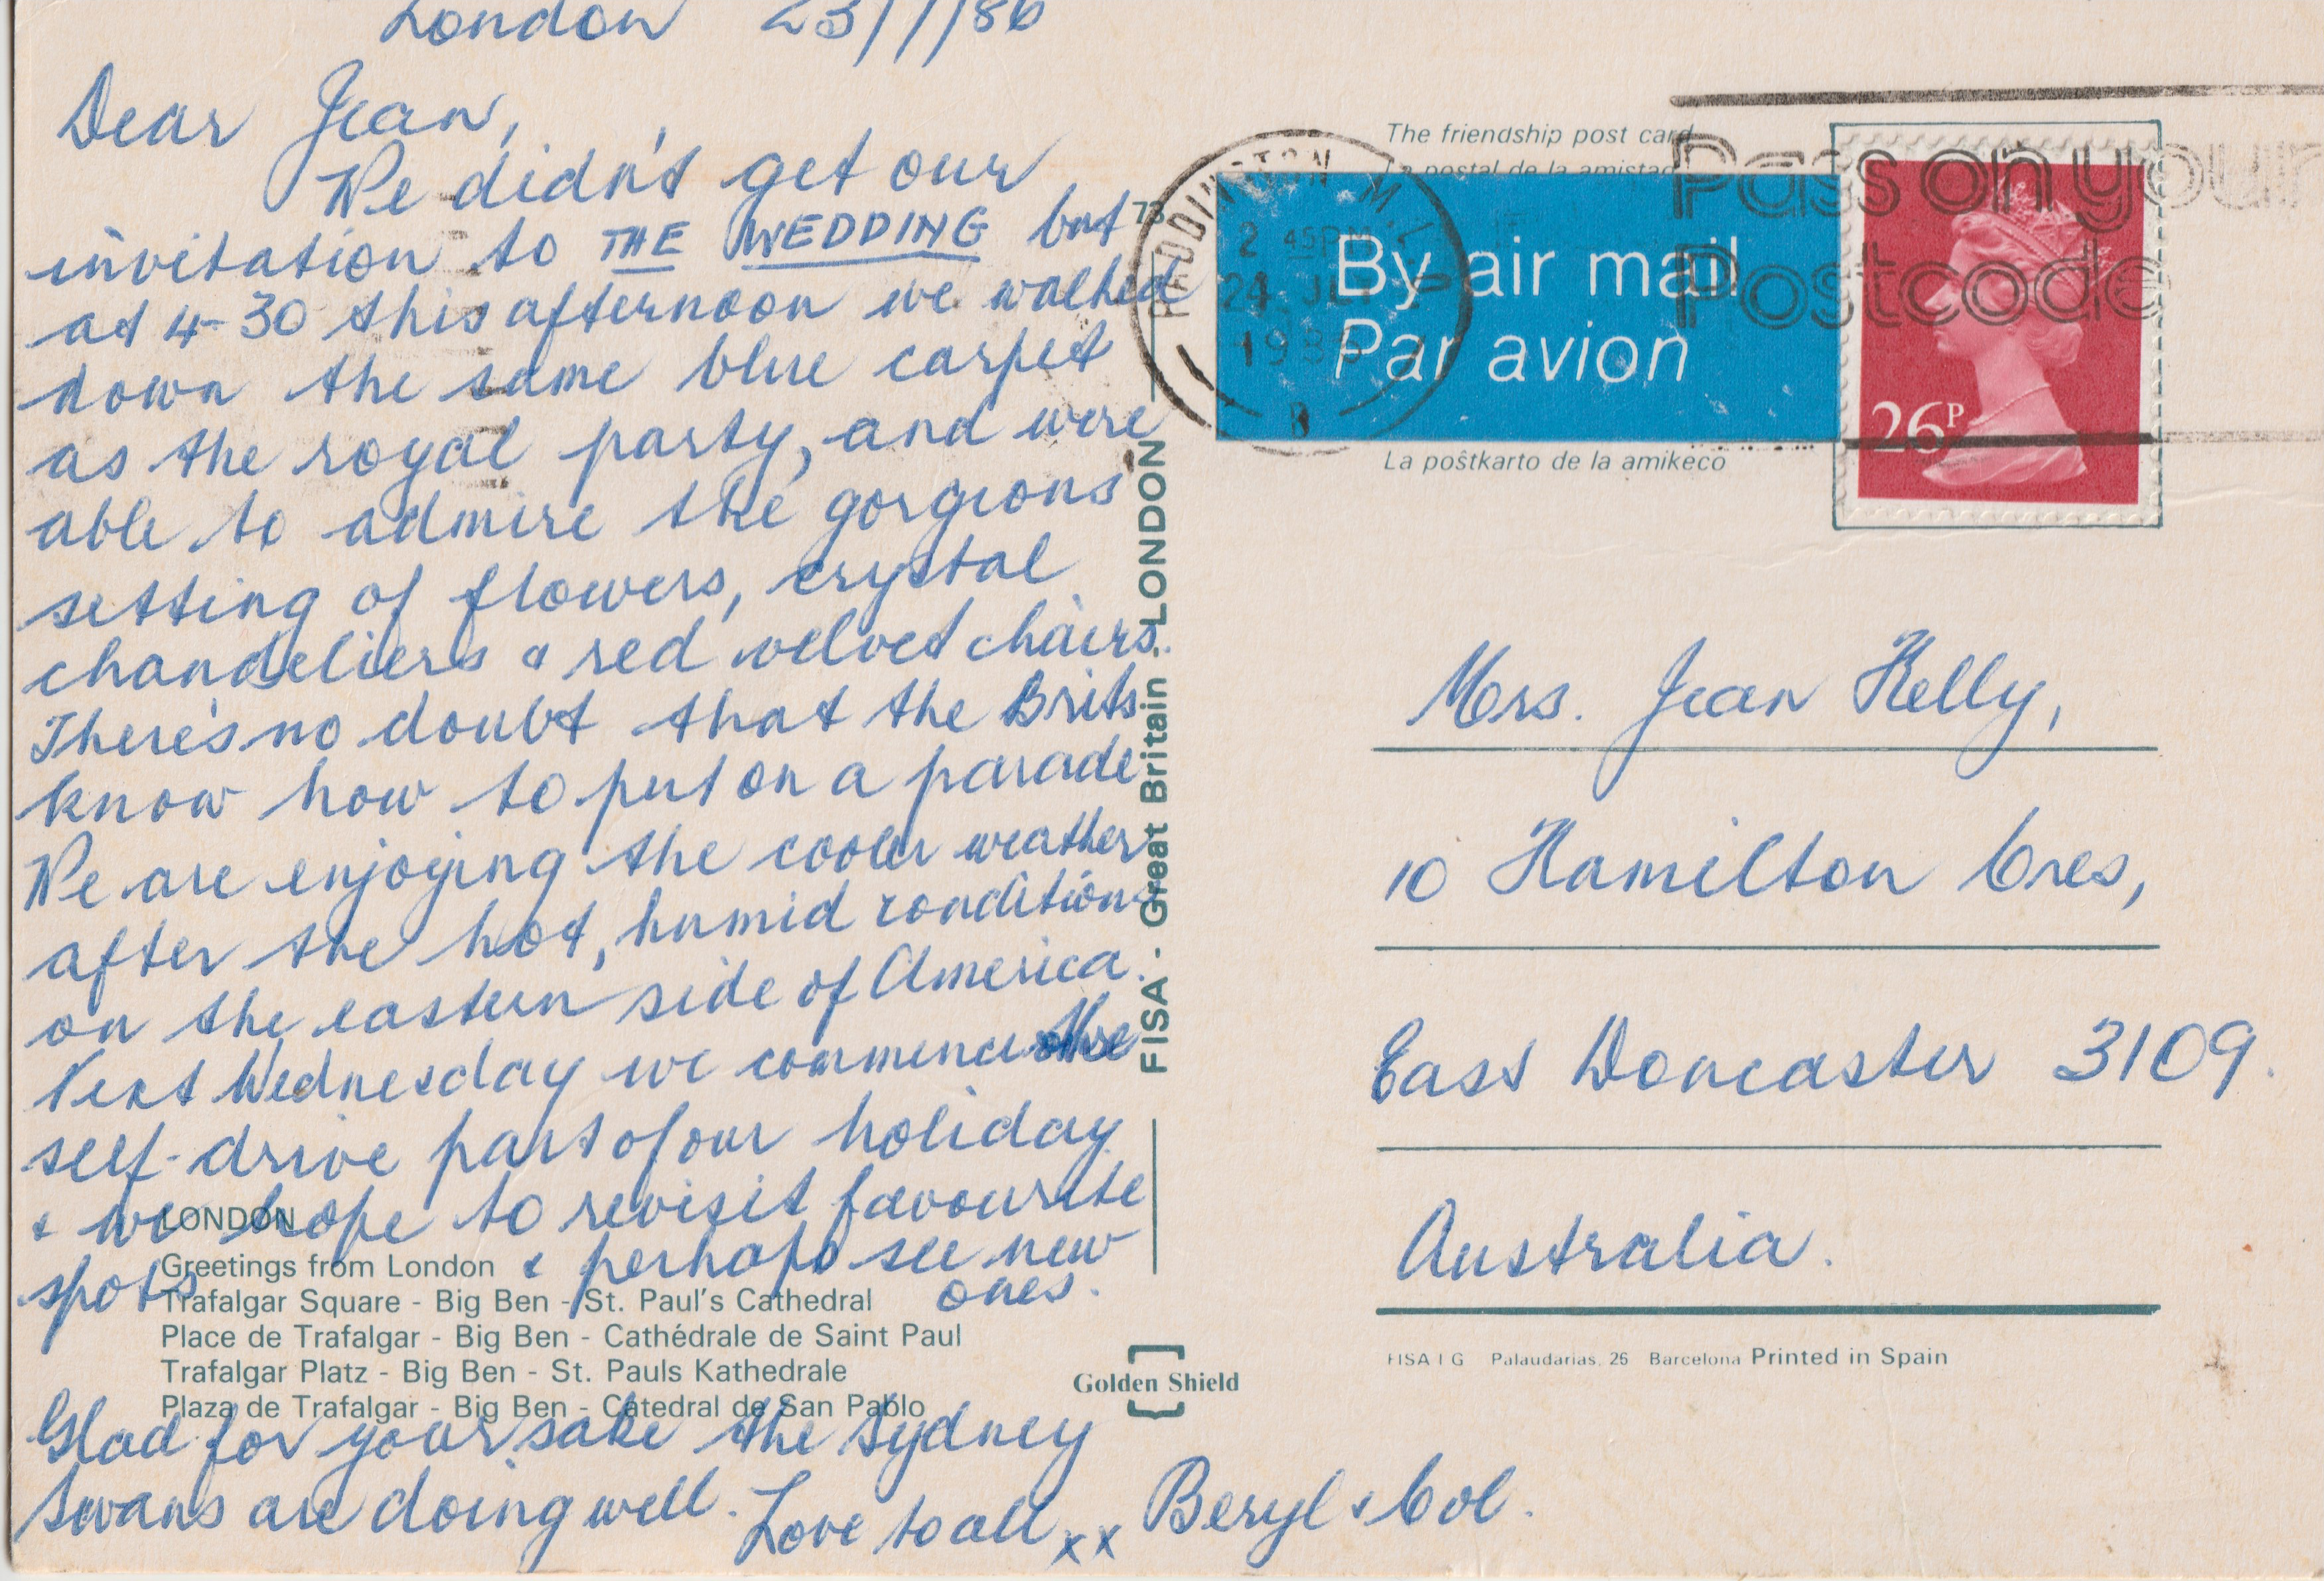 London 23/7/86
Dear Jean,
We didn't get our
invitation to THE WEDDING but
at 4-30 this afternoon we walked
down the same blue carpet
as the royal party, and were
able to admire the gorgeous
setting of flowers, crystal
chandeliers & red velvet chairs.
There's no doubt that the Brits
know how to put on a parade
We are enjoying the cooler weather
after the hot, humid conditions
on the eastern side of America.
Next Wednesday we commence the
self-drive part of our holiday
& we hope to revisit favourite
spots & perhaps see new
ones.
LONDON
Greetings from London
Trafalgar Square - Big Ben - St. Paul's Cathedral
Place de Trafalgar - Big Ben - Cathédrale de Saint Paul
Trafalgar Platz - Big Ben - St. Pauls Kathedrale
Plaza de Trafalgar - Big Ben - Catedral de San Pablo
Glad for your sake the Sydney
Swans are doing well. Love to all xx Beryl & Col.
73
FISA - Great Britain - LONDON
Golden Shield
The friendship post card
La postal de la amistad
By air mail
Par avion
La poŝtkarto de la amikeco
PADDINGTON
2 45PM
24 JLY
1986
B
Pass on your
Postcode
26P
Mrs. Jean Kelly,
10 Hamilton Cres,
East Doncaster 3109.
Australia.
FISA I G Palaudarias, 26 Barcelona Printed in Spain